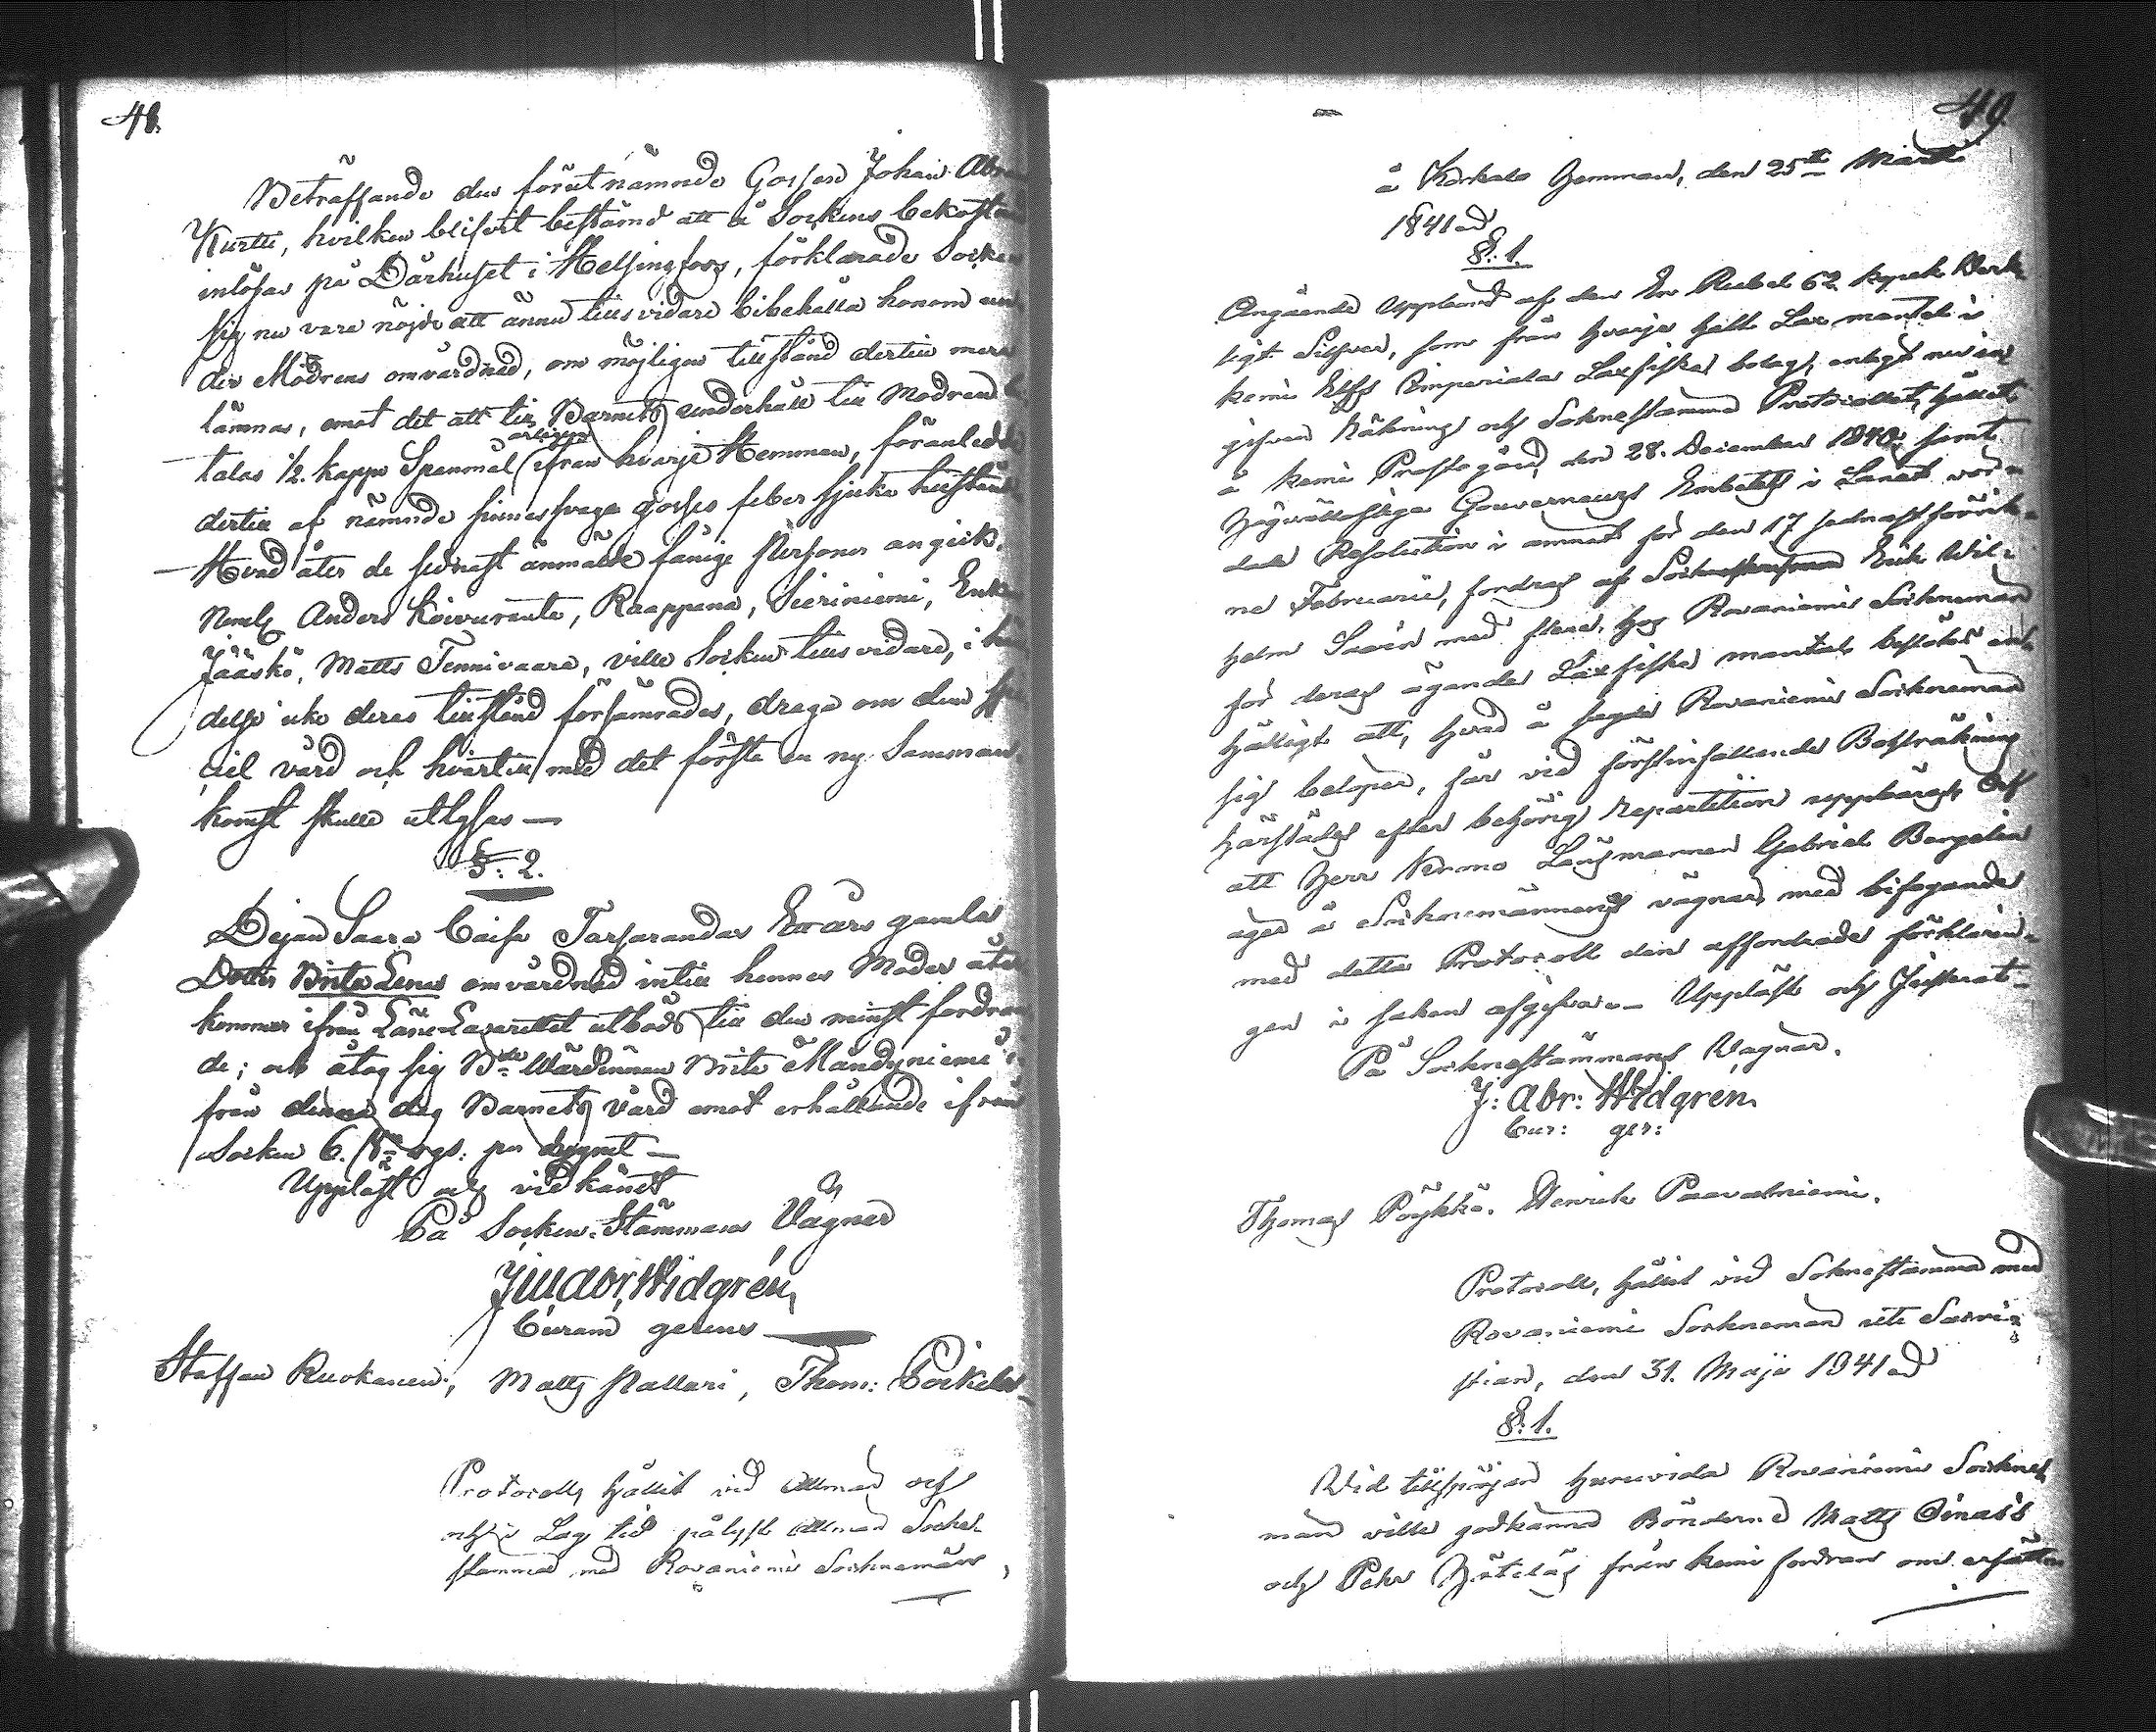 48.
Beträffande den förutnämnde Gossen Johan Abra
Kurtti, hvilken blifvit bestämd att å Sockens bekostn
inlösas på Dårhuset i Helsingfors, förklarade Socken
sig nu vara nöjde att ännu tills vidare bibehålla honom
der Modrens omvårdnad, om möjligen tillstånd dertill
lämnas, emot det att till Barnets underhåll till Modren
talas 1/2. kappe Spanmål årligen ifrån hvarje Hemman, föranledde
dertill af nämnde sinnessvaga gosses feber sjuka tillstånd
Hvad åter de sednast anmälde fånige Personer angick,
Neml. Anders Koivuranta, Raappana, Sieriniemi, Enk
Jääskö, Matts Tennivaara, ville Socken tills vidare, i
delse icke deras tillstånd försämrades, draga om dem spe
ciel vård och hvartill med det första en ny Samman
komst skulle utlysas —
§. 2.
Dejan Saara Caisa Tarsarandas års gamla
Dotter Brita Lenas omvårdnad intill hennes Moder åter
kommer ifrån Läns Lazarettet utböds till den minst fordran
de; och åtog sig Bde Wärdinnan Brita Mändyniemi i
från denna dag Barnets vård emot erhållande ifrån
Socken 6. rgs: pr dygnet —
Uppläst och vidkändt
På Socken-Stämmans Vägnar
Widgrén,
Curam gerens
Staffan Ruokanen, Matts Pallari, Thom: Poikela
Protocoll, hållit vid Allmän och
och i Lag tid pålyst Allmän Socken
stämma med Rovaniemi Socknemän,
49.
å Korkalo Hemman, den 25te Martii
1841.
§. 1.
Angående Uppbörd af den En Rubel 62 kopek
ligt Silfver, som från hvarje helt Lax mantal i
Kemi Elfs Imperiala Laxfiske bolag, enligt
gifven Räkning och Socknestämma Protocollet, hållet
å Kemi Prestegård, den 28. December 1840, samt
Högvälloflige Gouverneurs Embetets i Länet
dade Resolution i ämnet för den 17 sednast förvik-
ne Februarii, fordras af Erik Wil-
helm Savén med flere, hos Rovaniemi Sockneman
för deras ägande Laxfiske mantal beslöts en-
hälligt att, hvad å sagde Rovaniemi Sockneman
sig belöper, får vid förstinfallande
härstädes efter behörig repartition uppbäras och
att Herr Krono Länsmannen Gabriel Bergelin
äger å Sockenemännens vägnar, med bifogande
med detta Protocoll den affordrade förklarin-
gen i saken afgifva. — Uppläst och Justerat —
På Socknestämmans Vägnar.
J: Abr: Widgren.
Cur: ger:
Thomas Pöykkö. Henrik Paavalniemi.
Protocoll, hållit vid Soknestämma med
Rovaniemi Sockneman
den 31. Maji 1841
§. 1.
Vid tillfrågan huruvida Rovaniemi Sockne
man ville godkänna Bönderne Matts Oinas's
och Pehr från Kemi fordran om ersättn